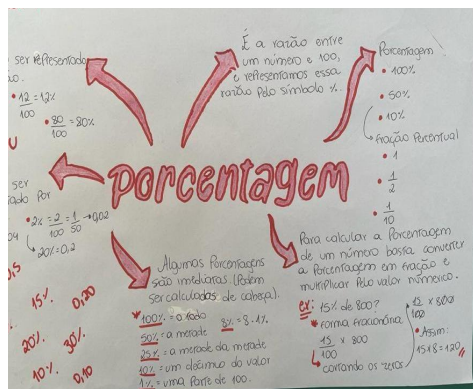 ser representado
ao.
• 12/100 = 12%
• 80/100 = 80%
É a razão entre
um número e 100,
e representamos essa
razão pelo símbolo %.
Porcentagem
• 100%
• 50%
• 10%
Fração Percentual
• 1
• 1/2
• 1/10
porcentagem
ser
ado por
• 2% = 2/100 = 1/50 → 0,02
04
20% = 0,2
0,5
15% 0,20
20% 30%
10% 0,10
Algumas Porcentagens
são imediatas. (Podem
ser calculadas de cabeça).
* 100% = o todo
50% = a metade 8% = 8 . 1%
25% = a metade da metade
10% = um décimo do valor
1% = uma parte de 100.
Para calcular a Porcentagem
de um número bassa converter
a Porcentagem em fração e
multiplicar pelo valor númerico.
ex: 15% de 800?
* forma fracionária
15/100 x 800
cortando os zeros
15/100 x 800
• Assim:
15 x 8 = 120